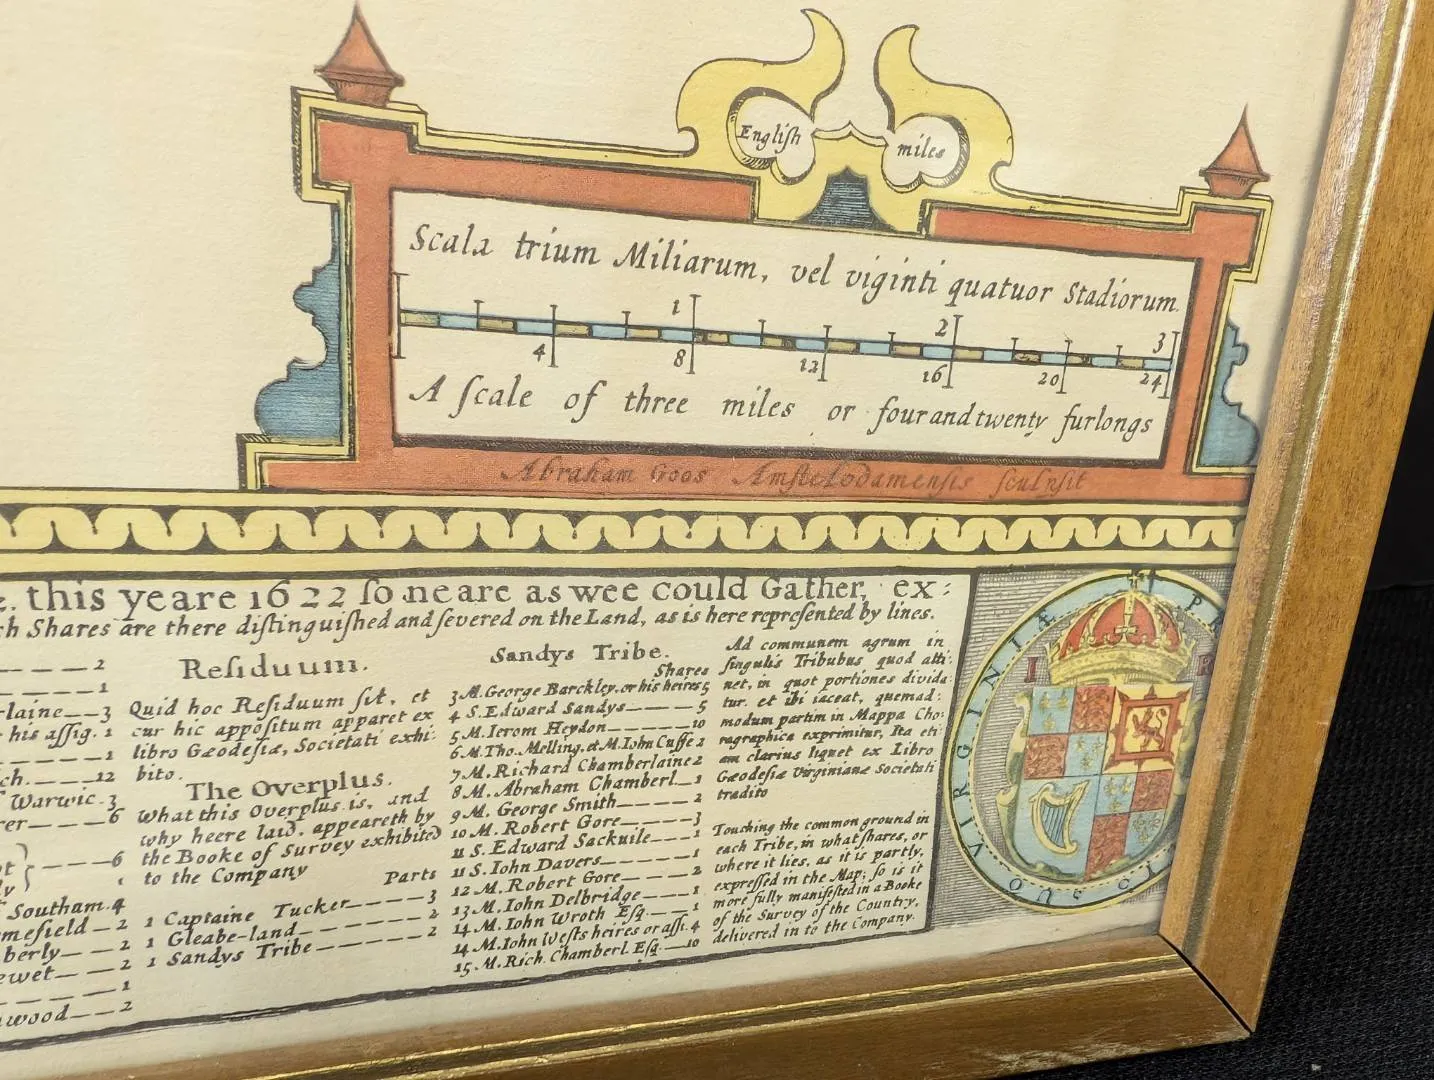 English miles
Scala trium Miliarum, vel viginti quatuor Stadiorum.
1 2 3
4 8 12 16 20 24
A ſcale of three miles or four and twenty furlongs
Abraham Goos Amstelodamensis sculpsit
this yeare 1622 ſo neare as wee could Gather, ex:
Shares are there diſtinguiſhed and ſevered on the Land, as is here repreſented by lines.
2
1
laine 3
his aſſig. 1
1
ch. 12
Warwic. 3
rer 6
6
Southam. 4
meſield 2
berly 2
ewet 2
1
wood 2
Reſiduum.
Quid hoc Reſiduum ſit, et
cur hic appoſitum apparet ex
libro Gæodeſiæ, Societati exhi:
bito.
The Overplus.
what this Overplus is, and
why heere laid, appeareth by
the Booke of Survey exhibited
to the Company
Parts
1 Captaine Tucker 3
1 Gleabe-land 2
1 Sandys Tribe 2
Sandys Tribe.
Shares
3 M. George Barckley, or his heires 5
4 S. Edward Sandys 5
5 M. Ierom Heydon 10
6 M. Tho. Melling, et M. Iohn Cuffe 2
7 M. Richard Chamberlaine 2
8 M. Abraham Chamberl. 1
9 M. George Smith 2
10 M. Robert Gore 3
11 S. Edward Sackuile 1
11 S. Iohn Davers 1
12 M. Robert Gore 2
13 M. Iohn Delbridge 1
14 M. Iohn Wroth Eſq. 1
14 M. Iohn Weſts heires or aſſi. 4
15 M. Rich. Chamberl. Eſq. 10
Ad communem agrum in
ſingulis Tribubus quod atti:
net, in quot portiones divida
tur. et ibi iaceat, quemad:
modum partim in Mappa Cho:
ragraphica exprimitur, Ita eti:
am clarius liquet ex Libro
Gæodeſiæ Virginianæ Societati
tradito
Touching the common ground in
each Tribe, in what ſhares, or
where it lies, as it is partly,
expreſſed in the Map; ſo is it
more fully manifeſted in a Booke
of the Survey of the Country,
delivered in to the Company.
I R
VIRGINIÆ